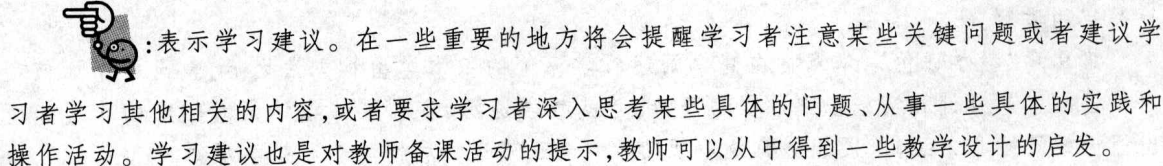 :表示学习建议。在一些重要的地方将会提醒学习者注意某些关键问题或者建议学
习者学习其他相关的内容,或者要求学习者深入思考某些具体的问题、从事一些具体的实践和
操作活动。学习建议也是对教师备课活动的提示,教师可以从中得到一些教学设计的启发。